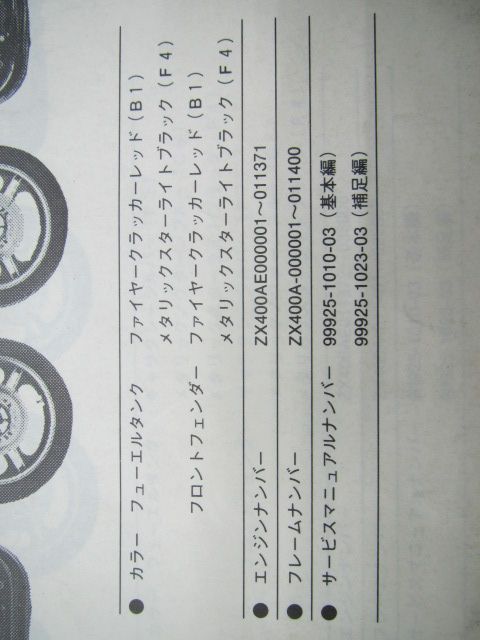 ● カラー フューエルタンク ファイヤークラッカーレッド（B1）
メタリックスターライトブラック（F4）
フロントフェンダー ファイヤークラッカーレッド（B1）
メタリックスターライトブラック（F4）
● エンジンナンバー ZX400AE000001～011371
● フレームナンバー ZX400A-000001～011400
● サービスマニュアルナンバー 99925-1010-03（基本編）
99925-1023-03（補足編）